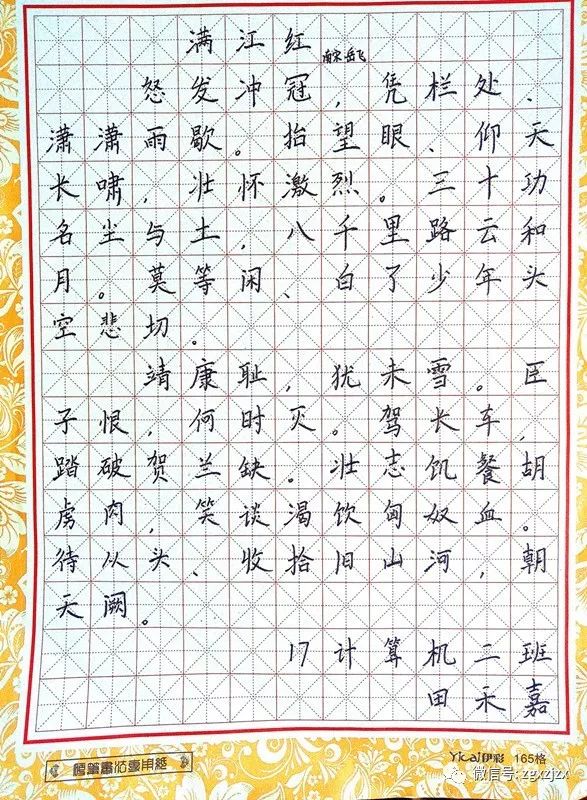 满江红 南宋 岳飞
怒发冲冠，凭栏处、
潇潇雨歇。抬望眼、仰天
长啸，壮怀激烈。三十功
名尘与土，八千里路云和
月。莫等闲、白了少年头
空悲切。
靖康耻，犹未雪。臣
子恨，何时灭。驾长车，
踏破贺兰缺。壮志饥餐胡
虏肉，笑谈渴饮匈奴血。
待从头、收拾旧山河，朝
天阙。
17计算机二班
田禾嘉
硬笔书法专用纸
Yicai伊彩 165格
微信号: zgxzjzx